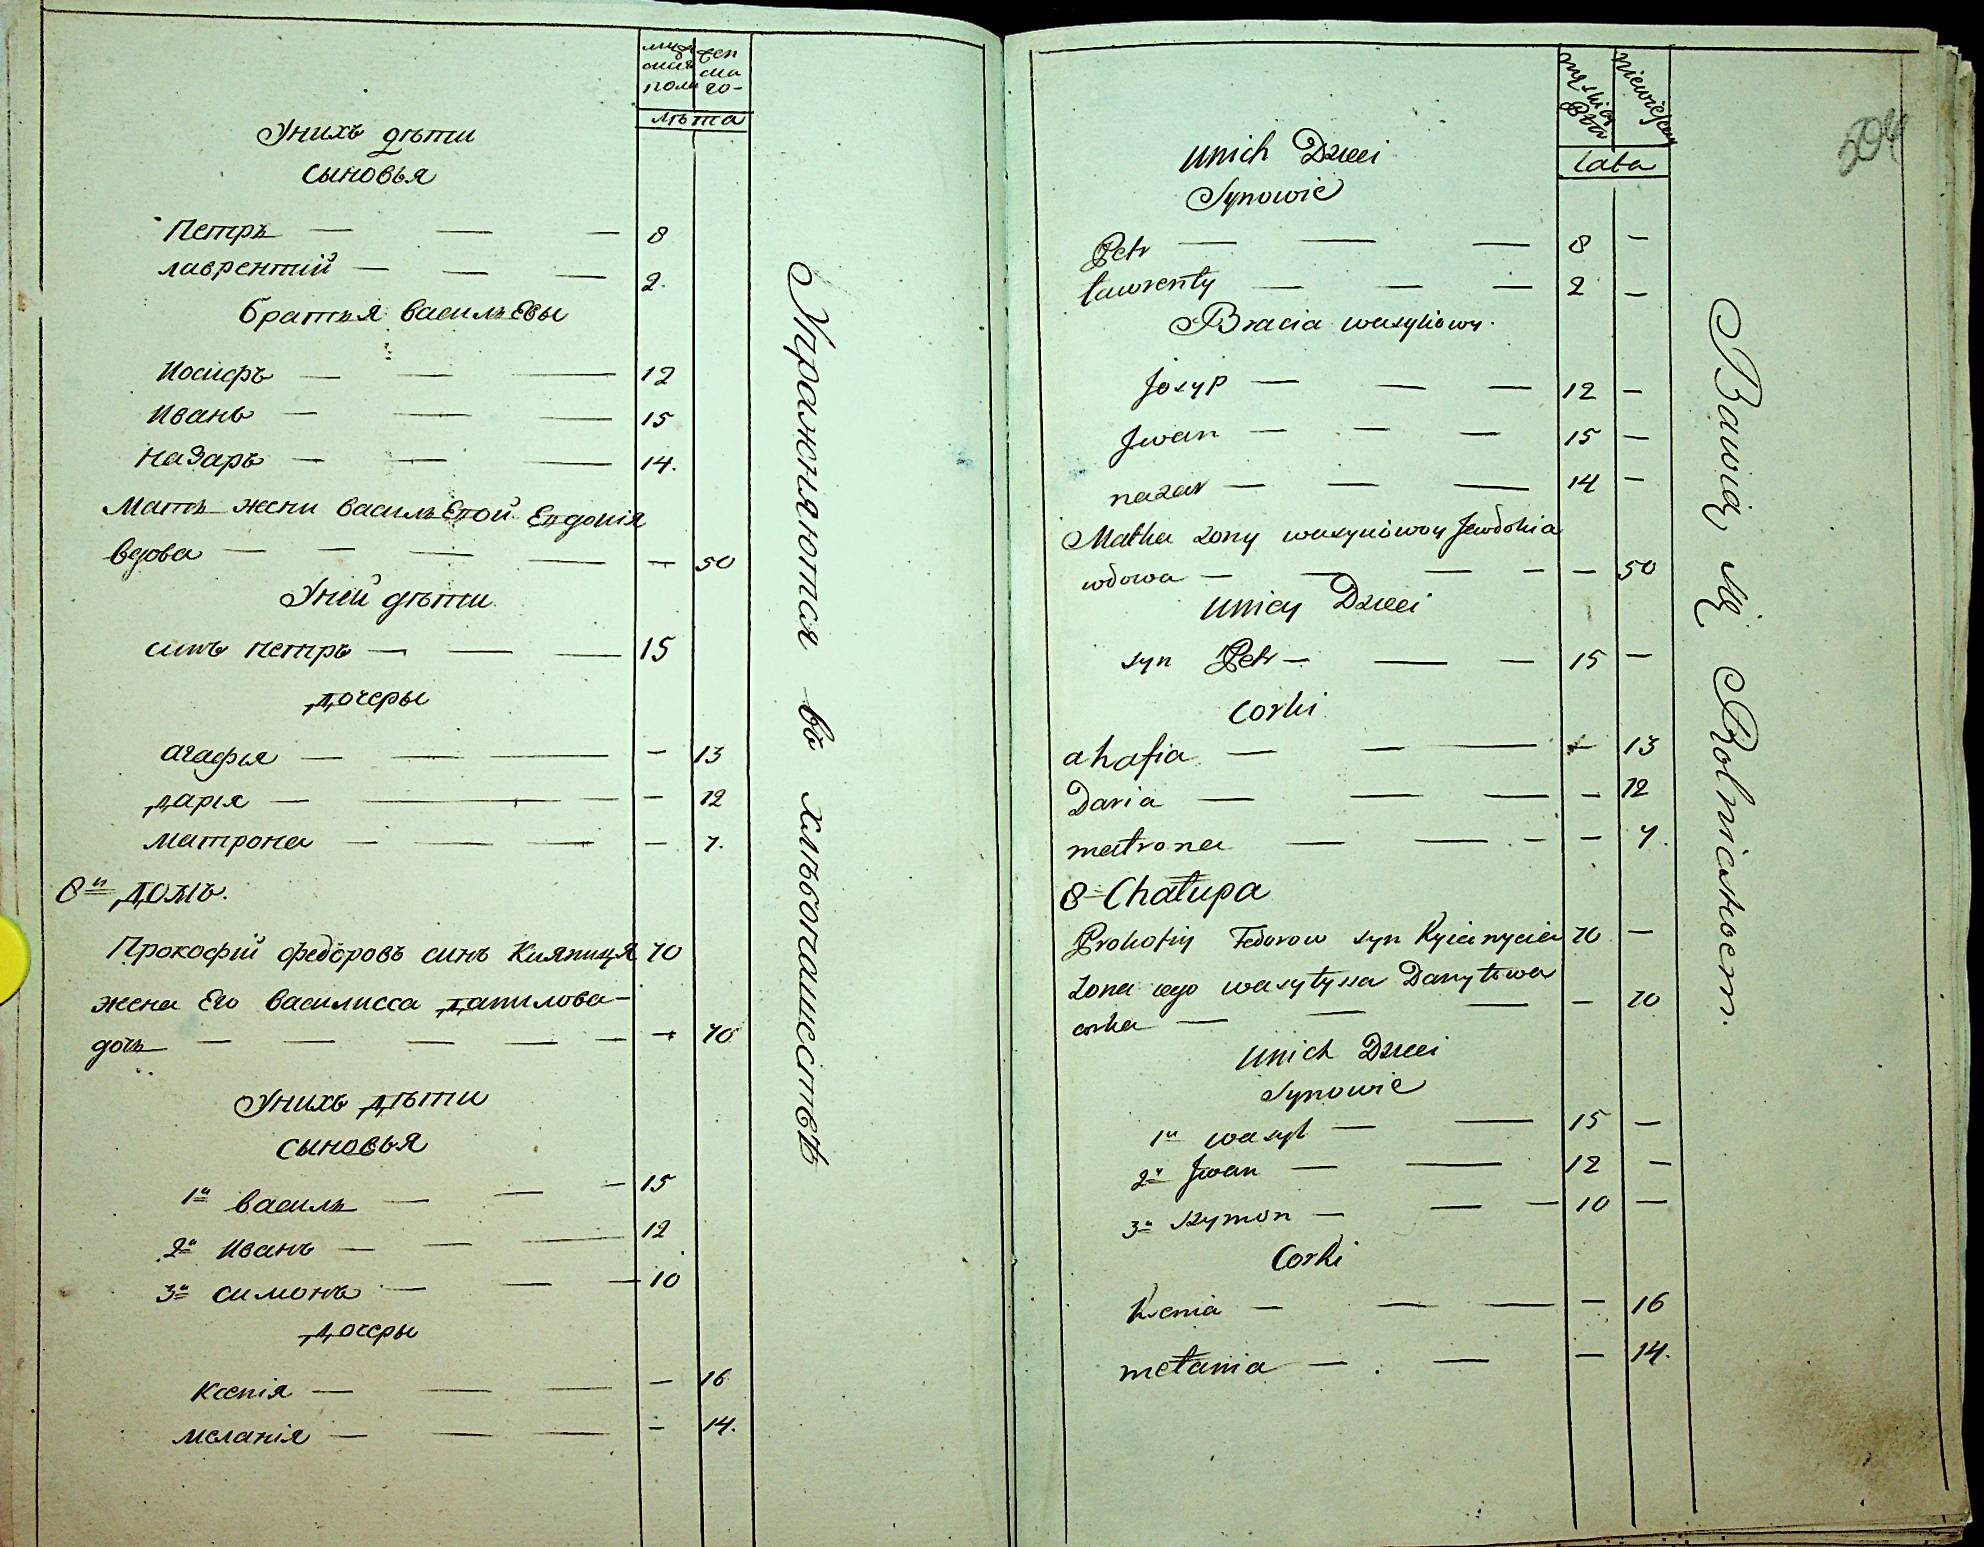 мужеска полу
женскаго-
лѣта
Унихъ дѣти
сыновья
Петръ — — — 8
лаврентій — — — 2.
братья васильевы
Иосифъ — — — 12
Иванъ — — — 15
назаръ — — — 14.
Мать жени васильевой Евдокія
вдова — — — — — 50
Уней дѣти
синъ петръ — — — 15
дочеры
агафія — — — — 13
дарія — — — — 12
матрона — — — — 7.
8й домъ.
Прокофій федоровъ синъ Кияница 70
жена Его василисса данилова-
дочь — — — — — — 70
Унихъ дѣти
сыновья
1й василь — — — 15
2й Иванъ — — — 12
3й симонъ — — — 10
дочеры
Ксенія — — — — 16
меланія — — — — 14.
Упражняются въ хлѣбопашествѣ
504
lata
unich Dzieci
Synowie
Petr — — — 8 —
Ławrenty — — — 2 —
Bracia wasyliowy.
Josyp — — — 12 —
Jwan — — — 15 —
nazar — — — 14 —
Matka zony wasyliowoy Jewdokia
wdowa — — — — — 50
unicy Dzieci
syn Petr — — — 15 —
corki
ahafia — — — — 13
Daria — — — — 12
matrona — — — — 7.
8- Chałupa
Prokofiy Fedorow syn 70 —
zona iego wasyłyssa Danyłowa
corka — — — — 70
unich Dzieci
Synowie
1й wasyl — — 15 —
2й Jwan — — 12 —
3й szymon — — — 10 —
Corki
Ksenia — — — — 16
mełania — — — 14.
Bawią się Rolnictwem.